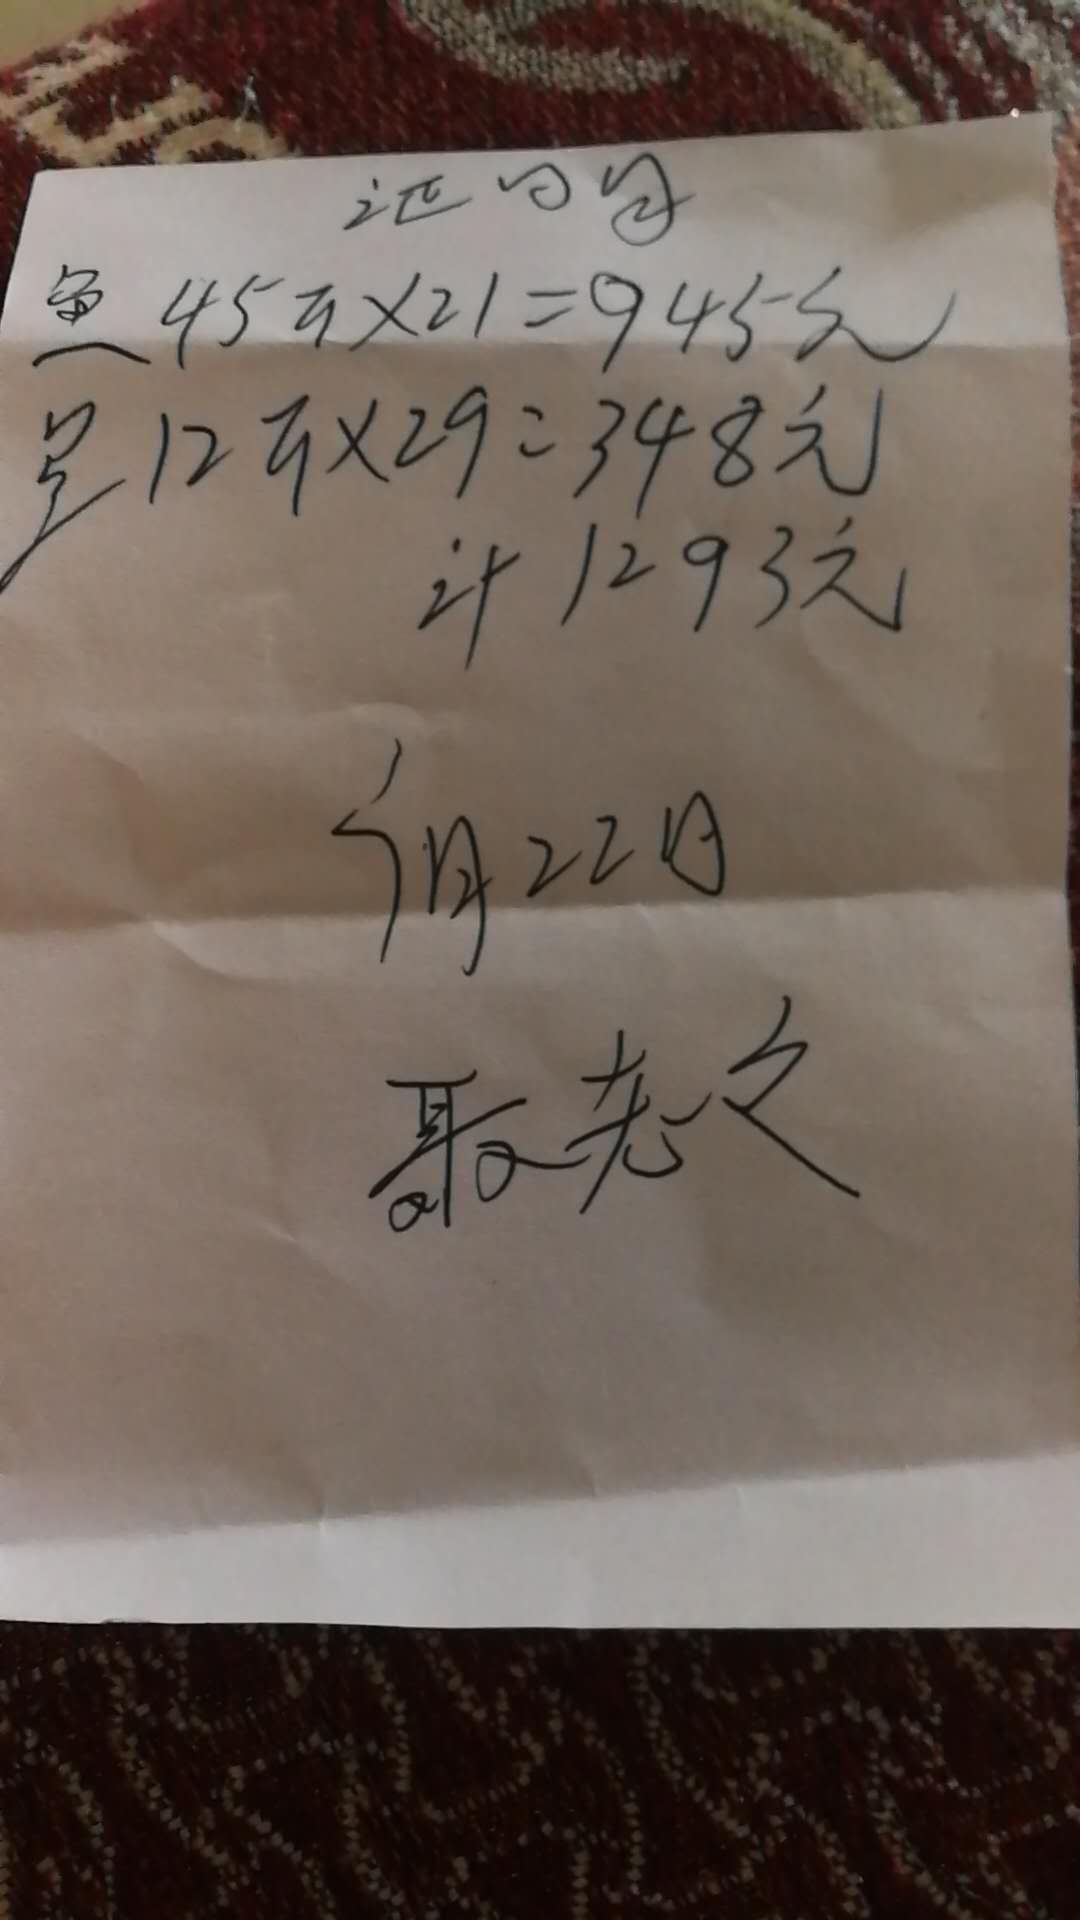 证明
鱼 45斤×21=945元
12斤×29=348元
计1293元
月22日
聂志文